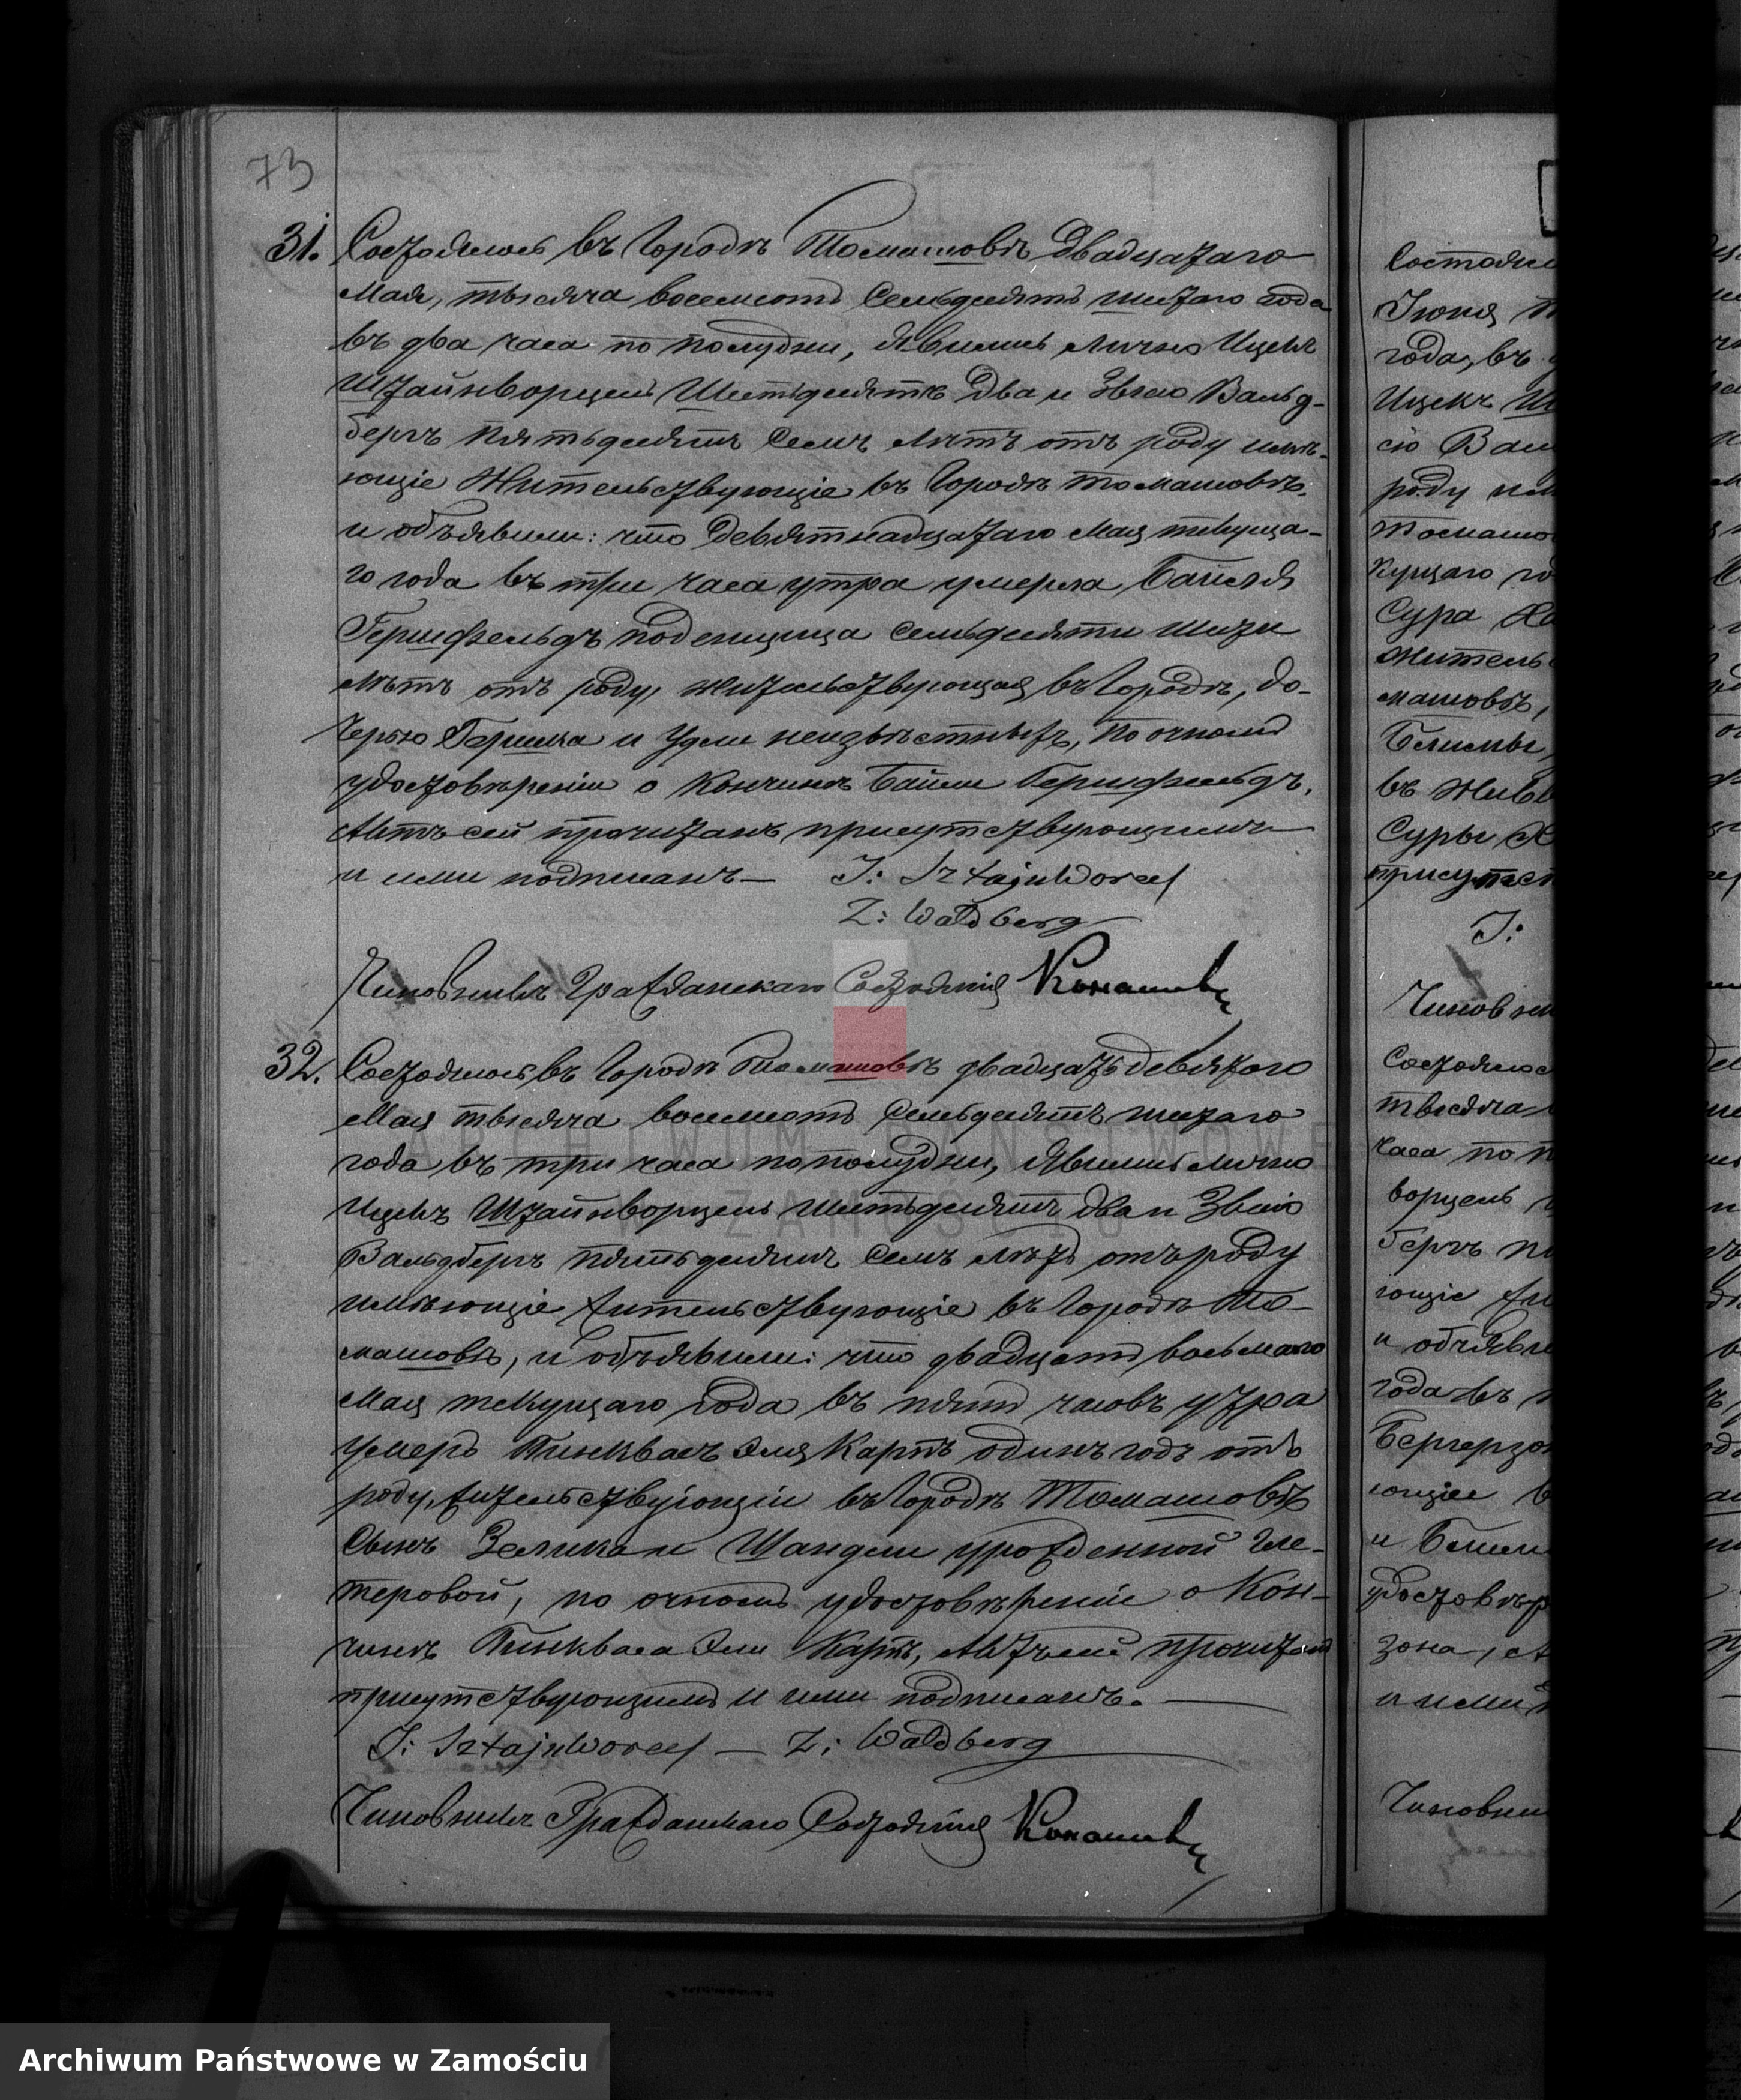 73
31. Состоялось въ Городѣ Томашовѣ двадцатаго
Мая, тысяча восемсотъ семьдесятъ шестаго года
въ два часа по полудни, явились лично Ицекъ
Штайнворцель Шестьдесятъ два и Звію Вальд-
бергъ пятьдесятъ семъ лѣтъ отъ роду имѣ-
ющіе Жительствующіе въ Городѣ Томашовѣ,
и объявили: что девятнадцатаго Мая текуща-
го года въ три часа утра умерла Байля
Гершфельдъ поденщица семьдесяти шести
лѣтъ отъ роду, жительствующая въ Городѣ, до-
черью Гершка и Удли неизвѣстныхъ, По очномъ
удостовѣреніи о кончинѣ Байли Гершфельдъ,
Актъ сей прочитанъ присутствующимъ
и ими подписанъ— J: Sztajnworcel
Z: Waldberg
Чиновникъ Гражданскаго Состоянія
32. Состоялось въ Городѣ Томашовѣ двадцать девятого
Мая тысяча восемсотъ семьдесятъ шестаго
года въ три часа пополудни, явились лично
Ицекъ Штайнворцель шестьдесятъ два и Звію
Вальдбергъ пятьдесятъ семъ лѣтъ отъ роду
имѣющіе жительствующіе въ Городѣ То-
машовѣ, и объявили: что двадцать восьмаго
Мая текущаго года въ пять часовъ утра
умеръ Пинквасъ Эля Картъ одинъ годъ отъ
роду, жительствующій въ Городѣ Томашовѣ
сынъ Зелика и Шандли урожденной Гле-
теровой, по очномъ удостовѣреніи о Кон-
чинѣ Пинкваса Эли Картъ, Актъ сей прочитанъ
присутствующимъ и ими подписанъ.
J: Sztajnworcel — Z: Waldberg
Чиновникъ Гражданскаго Состоянія
Состоялос
Іюня
года, въ
Ицекъ
сію Вал
роду
Томашо
кущаго го
Сура
Житель
машовѣ,
въ
Суры
присутст
J:
Чиновн
Состоялос
тысяча
часа по п
ворцель
бергъ
ющіе
и объяви
года въ
Бергерзо
ющіе
удостовѣр
зона,
и ими
Чиновни
ARCHIWUM PAŃSTWOWE
W ZAMOŚCIU
Archiwum Państwowe w Zamościu